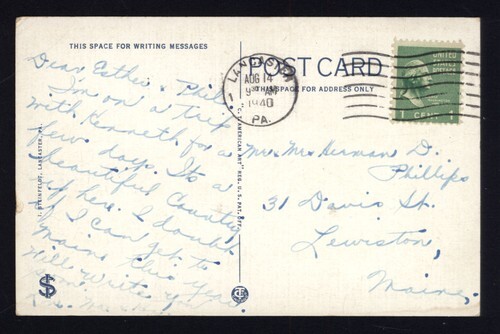 THIS SPACE FOR WRITING MESSAGES
Dear Esther & Phil:
I'm on a trip
with Kenneth for a
few days. Its a
beautiful Country
up here. I doubt
if I can get to
Maine this year.
Will write you
soon.
I. STEINFELDT, LANCASTER, PA.
$
"C.T. AMERICAN ART" REG. U.S. PAT. OFF.
POST CARD
THIS SPACE FOR ADDRESS ONLY
LANCASTER
AUG 14
9 AM
1940
PA.
UNITED
STATES
POSTAGE
1 CENT 1
Mr. Mrs Herman D.
Phillips
31 Davis St.
Lewiston,
Maine.